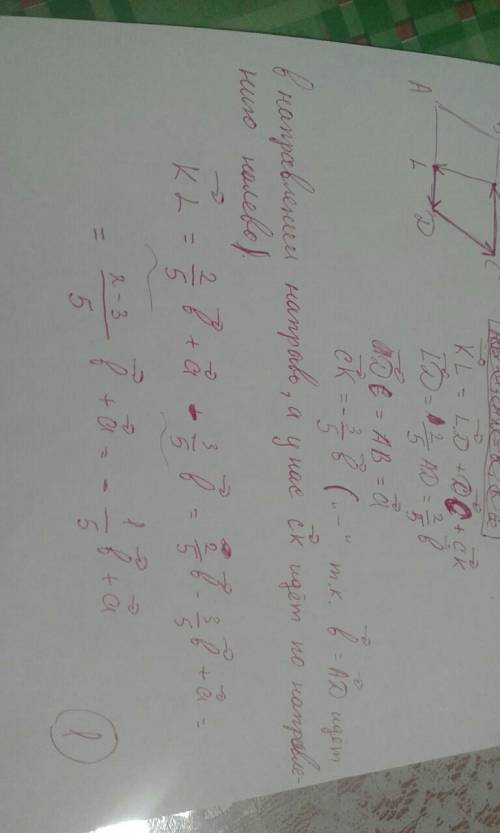 A
L
D
C
KL = LD + DC + CK
LD = 2/5 AD = 2/5 b
DC = AB = a
CK = - 3/5 b ( "-" т.к. b = AD идёт
в направлении направо, а у нас CK идёт по направле-
нию налево).
KL = 2/5 b + a - 3/5 b = 2/5 b - 3/5 b + a =
= 2-3/5 b + a = - 1/5 b + a
1